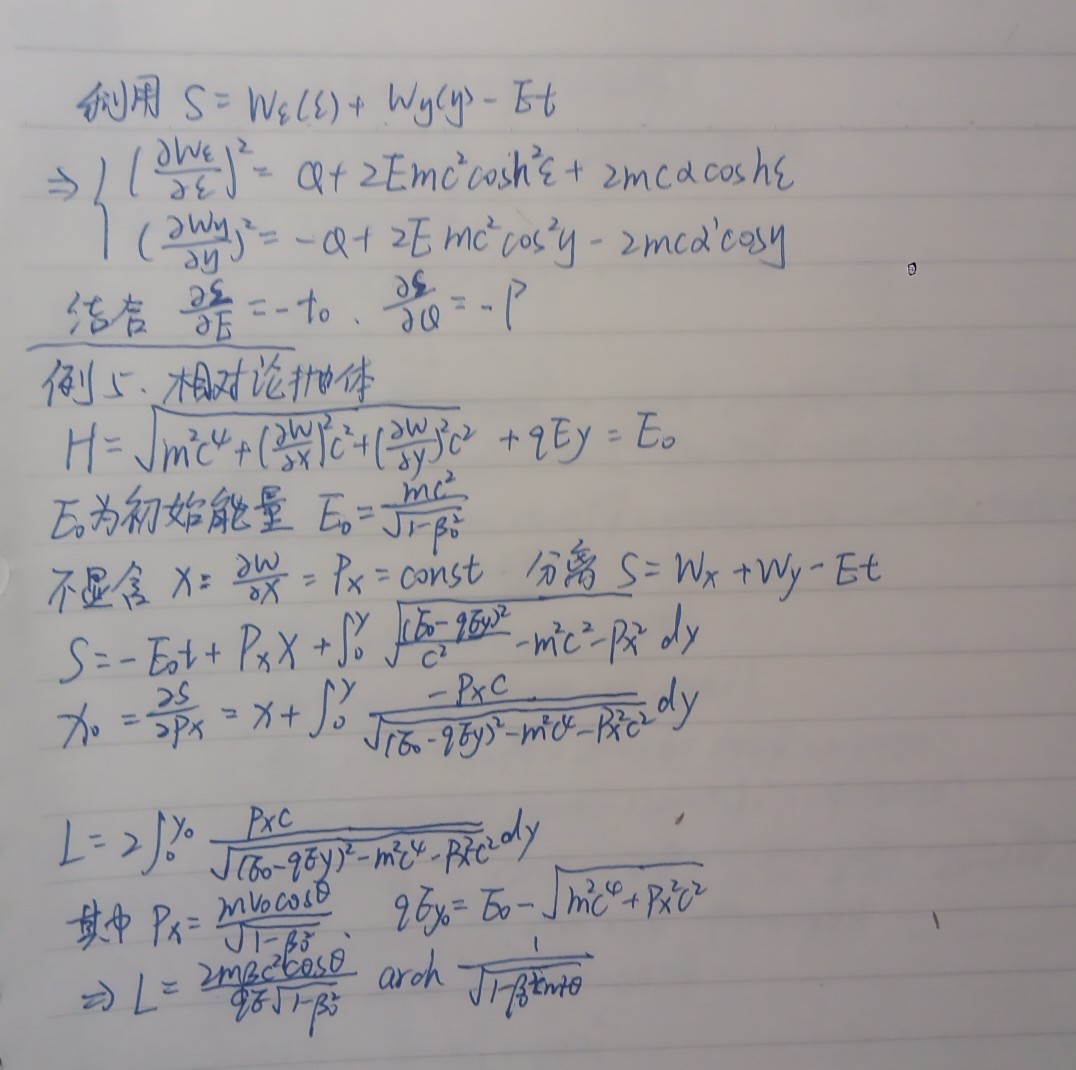 利用 S = Wε(ε) + Wy(y) - Et
⇒ { (∂Wε/∂ε)² = Q + 2Emc²cosh²ε + 2mcαcoshε
(∂Wy/∂y)² = -Q + 2Emc²cos²y - 2mcα'cosy
结合 ∂S/∂E = -t₀、 ∂S/∂Q = -P
例5、相对论抛体
H = √(m²c⁴ + (∂W/∂x)²c² + (∂W/∂y)²c²) + qEy = E₀
E₀为初始能量 E₀ = mc²/√(1-β₀²)
不显含 x: ∂W/∂x = Px = const 分离 S = Wx + Wy - Et
S = -E₀t + Pxx + ∫₀^y √((E₀-qEy)²/c² - m²c² - Px²) dy
x₀ = ∂S/∂Px = x + ∫₀^y -Pxc/√((E₀-qEy)² - m²c⁴ - Px²c²) dy
L = 2∫₀^y₀ Pxc/√((E₀-qEy)² - m²c⁴ - Px²c²) dy
其中 Px = mv₀cosθ/√(1-β₀²)、 qEy₀ = E₀ - √(m²c⁴ + Px²c²)
⇒ L = 2mβc²cosθ/(qE√(1-β₀²)) arch 1/√(1-β₀²sin²θ)